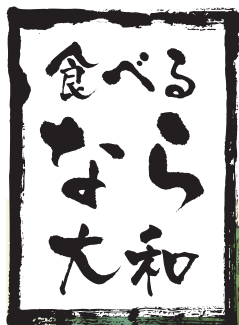 食べる
なら
大和